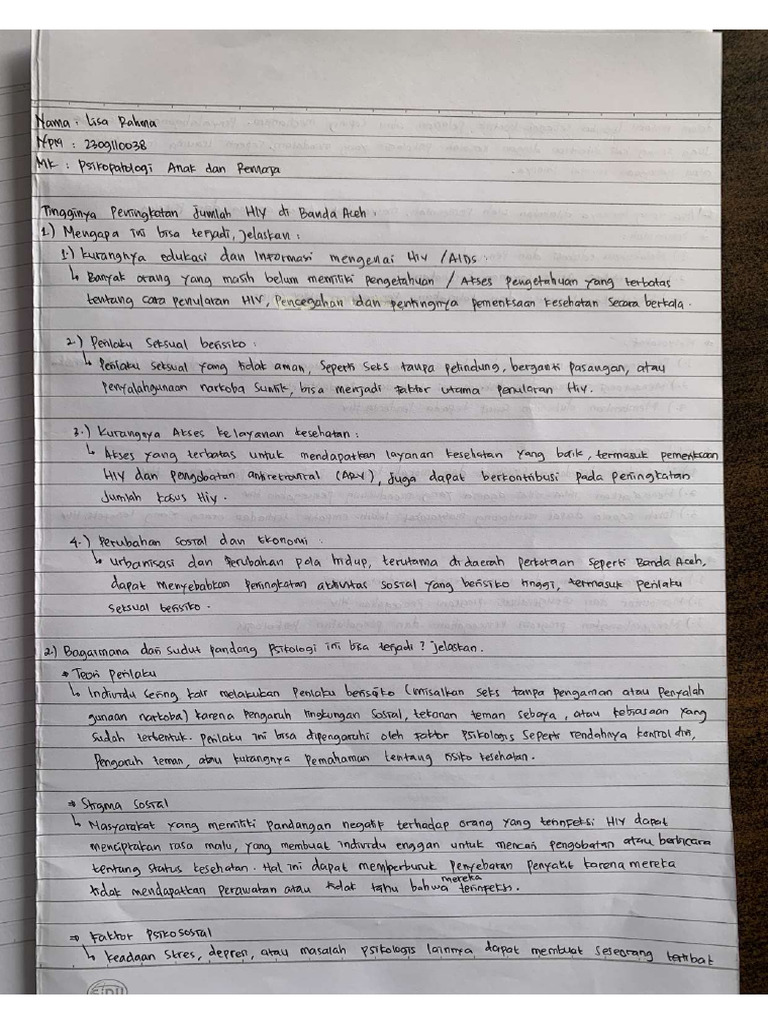 Nama : Lisa Rahma
NPM : 2309110038
MK : Psikopatologi Anak dan Remaja
Tingginya Peningkatan Jumlah HIV di Banda Aceh :
1.) Mengapa ini bisa terjadi, jelaskan :
1.) Kurangnya edukasi dan Informasi mengenai HIV / AIDS :
↳ Banyak orang yang masih belum memiliki pengetahuan / Akses pengetahuan yang terbatas
tentang cara penularan HIV, Pencegahan dan pentingnya pemeriksaan kesehatan secara berkala.
2.) Perilaku Seksual berisiko :
↳ Perilaku seksual yang tidak aman, seperti seks tanpa pelindung, berganti pasangan, atau
penyalahgunaan narkoba suntik, bisa menjadi faktor utama penularan HIV.
3.) Kurangnya Akses kelayanan kesehatan :
↳ Akses yang terbatas untuk mendapatkan layanan kesehatan yang baik, termasuk pemeriksaan
HIV dan pengobatan antiretroviral (ARV), juga dapat berkontribusi pada peningkatan
Jumlah kasus HIV.
4.) Perubahan Sosial dan Ekonomi :
↳ Urbanisasi dan Perubahan pola hidup, terutama di daerah perkotaan seperti Banda Aceh,
dapat menyebabkan Peningkatan aktivitas sosial yang berisiko tinggi, termasuk perilaku
seksual berisiko.
2.) Bagaimana dari sudut pandang Psikologi ini bisa terjadi ? Jelaskan.
⇒ Teori Perilaku
↳ Individu sering kali melakukan Perilaku berisiko (misalkan seks tanpa pengaman atau Penyalah
gunaan narkoba) karena Pengaruh lingkungan sosial, tekanan teman sebaya, atau kebiasaan yang
sudah terbentuk. Perilaku ini bisa dipengaruhi oleh faktor Psikologis seperti rendahnya kontrol diri,
Pengaruh teman, atau kurangnya Pemahaman tentang risiko kesehatan.
⇒ Stigma Sosial
↳ Masyarakat yang memiliki pandangan negatif terhadap orang yang terinfeksi HIV dapat
menciptakan rasa malu, yang membuat individu enggan untuk mencari pengobatan atau berbicara
tentang status kesehatan. Hal ini dapat memperburuk Penyebaran Penyakit karena mereka
tidak mendapatkan Perawatan atau tidak tahu bahwa mereka terinfeksi.
⇒ Faktor Psikososial
↳ Keadaan stres, depresi, atau masalah psikologis lainnya dapat membuat seseorang terlibat